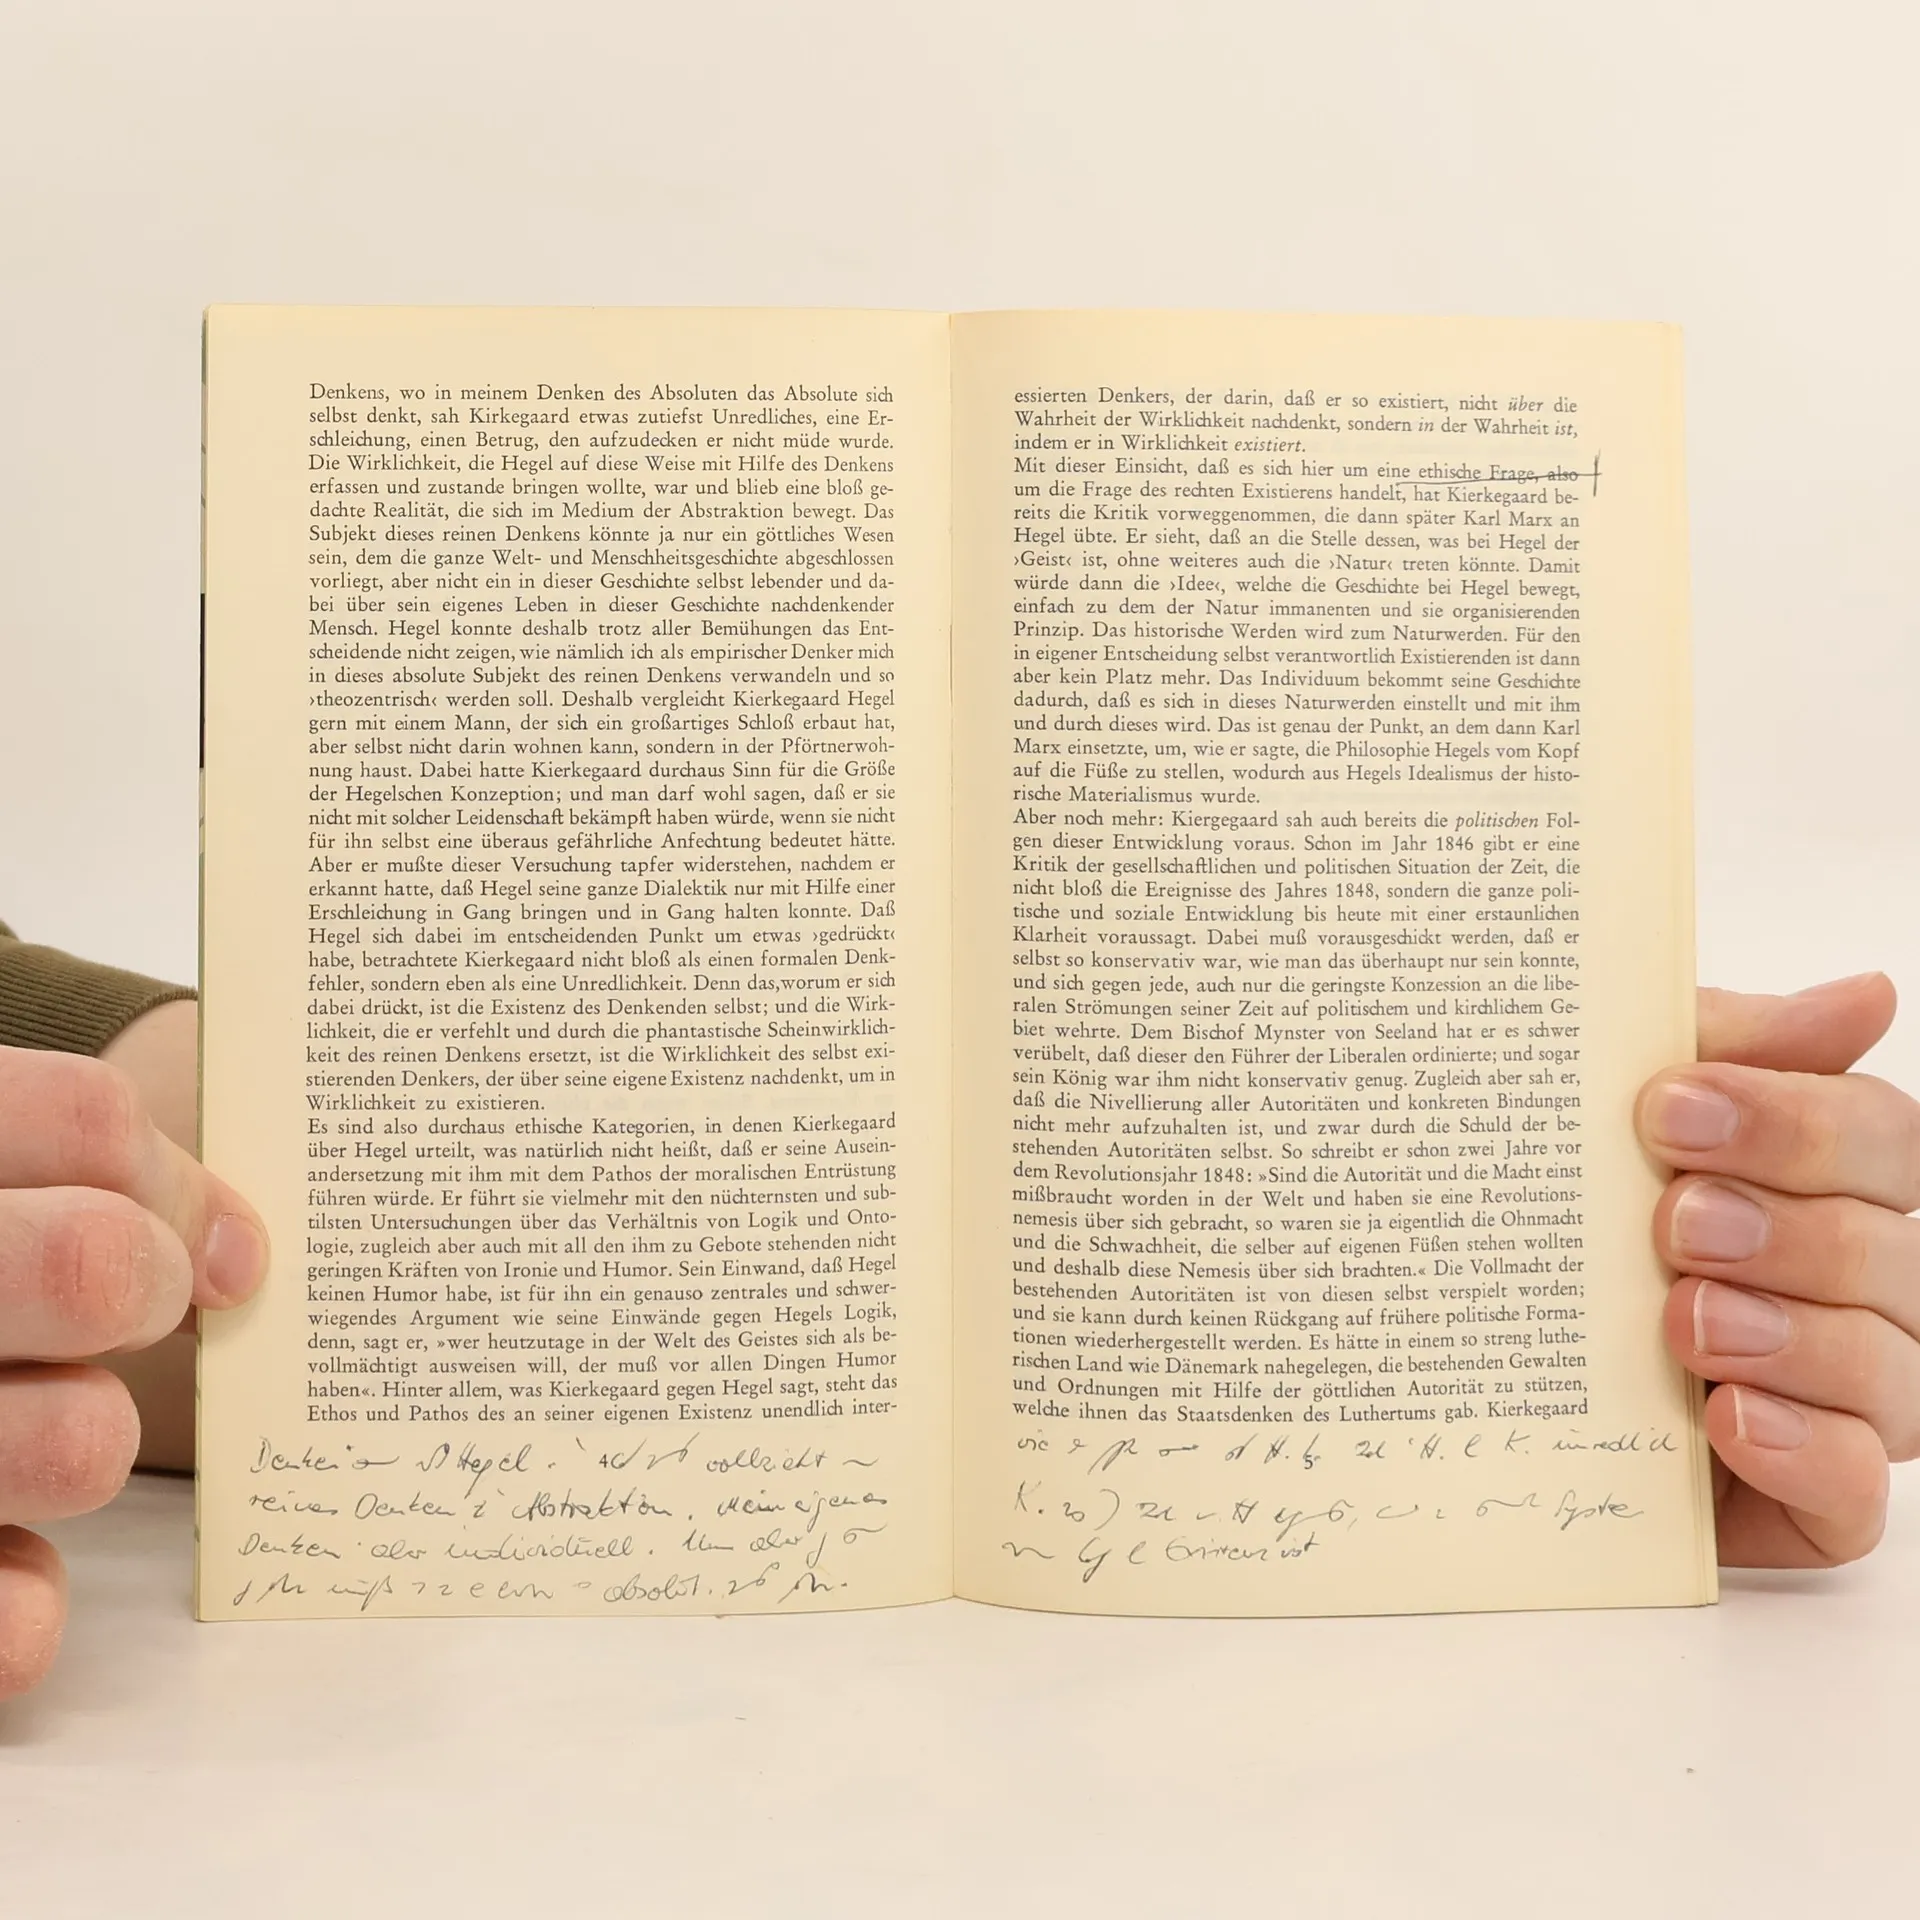 Denkens, wo in meinem Denken des Absoluten das Absolute sich
selbst denkt, sah Kirkegaard etwas zutiefst Unredliches, eine Er-
schleichung, einen Betrug, den aufzudecken er nicht müde wurde.
Die Wirklichkeit, die Hegel auf diese Weise mit Hilfe des Denkens
erfassen und zustande bringen wollte, war und blieb eine bloß ge-
dachte Realität, die sich im Medium der Abstraktion bewegt. Das
Subjekt dieses reinen Denkens könnte ja nur ein göttliches Wesen
sein, dem die ganze Welt- und Menschheitsgeschichte abgeschlossen
vorliegt, aber nicht ein in dieser Geschichte selbst lebender und da-
bei über sein eigenes Leben in dieser Geschichte nachdenkender
Mensch. Hegel konnte deshalb trotz aller Bemühungen das Ent-
scheidende nicht zeigen, wie nämlich ich als empirischer Denker mich
in dieses absolute Subjekt des reinen Denkens verwandeln und so
›theozentrisch‹ werden soll. Deshalb vergleicht Kierkegaard Hegel
gern mit einem Mann, der sich ein großartiges Schloß erbaut hat,
aber selbst nicht darin wohnen kann, sondern in der Pförtnerwoh-
nung haust. Dabei hatte Kierkegaard durchaus Sinn für die Größe
der Hegelschen Konzeption; und man darf wohl sagen, daß er sie
nicht mit solcher Leidenschaft bekämpft haben würde, wenn sie nicht
für ihn selbst eine überaus gefährliche Anfechtung bedeutet hätte.
Aber er mußte dieser Versuchung tapfer widerstehen, nachdem er
erkannt hatte, daß Hegel seine ganze Dialektik nur mit Hilfe einer
Erschleichung in Gang bringen und in Gang halten konnte. Daß
Hegel sich dabei im entscheidenden Punkt um etwas ›gedrückt‹
habe, betrachtete Kierkegaard nicht bloß als einen formalen Denk-
fehler, sondern eben als eine Unredlichkeit. Denn das,worum er sich
dabei drückt, ist die Existenz des Denkenden selbst; und die Wirk-
lichkeit, die er verfehlt und durch die phantastische Scheinwirklich-
keit des reinen Denkens ersetzt, ist die Wirklichkeit des selbst exi-
stierenden Denkers, der über seine eigene Existenz nachdenkt, um in
Wirklichkeit zu existieren.
Es sind also durchaus ethische Kategorien, in denen Kierkegaard
über Hegel urteilt, was natürlich nicht heißt, daß er seine Ausein-
andersetzung mit ihm mit dem Pathos der moralischen Entrüstung
führen würde. Er führt sie vielmehr mit den nüchternsten und sub-
tilsten Untersuchungen über das Verhältnis von Logik und Onto-
logie, zugleich aber auch mit all den ihm zu Gebote stehenden nicht
geringen Kräften von Ironie und Humor. Sein Einwand, daß Hegel
keinen Humor habe, ist für ihn ein genauso zentrales und schwer-
wiegendes Argument wie seine Einwände gegen Hegels Logik,
denn, sagt er, »wer heutzutage in der Welt des Geistes sich als be-
vollmächtigt ausweisen will, der muß vor allen Dingen Humor
haben«. Hinter allem, was Kierkegaard gegen Hegel sagt, steht das
Ethos und Pathos des an seiner eigenen Existenz unendlich inter-
Hegel. vollzieht
reines Denken Abstraktion. Mein eigenes
Denken aber individuell. aber
muß absolut.
essierten Denkers, der darin, daß er so existiert, nicht über die
Wahrheit der Wirklichkeit nachdenkt, sondern in der Wahrheit ist,
indem er in Wirklichkeit existiert.
Mit dieser Einsicht, daß es sich hier um eine ethische Frage, also
um die Frage des rechten Existierens handelt, hat Kierkegaard be-
reits die Kritik vorweggenommen, die dann später Karl Marx an
Hegel übte. Er sieht, daß an die Stelle dessen, was bei Hegel der
›Geist‹ ist, ohne weiteres auch die ›Natur‹ treten könnte. Damit
würde dann die ›Idee‹, welche die Geschichte bei Hegel bewegt,
einfach zu dem der Natur immanenten und sie organisierenden
Prinzip. Das historische Werden wird zum Naturwerden. Für den
in eigener Entscheidung selbst verantwortlich Existierenden ist dann
aber kein Platz mehr. Das Individuum bekommt seine Geschichte
dadurch, daß es sich in dieses Naturwerden einstellt und mit ihm
und durch dieses wird. Das ist genau der Punkt, an dem dann Karl
Marx einsetzte, um, wie er sagte, die Philosophie Hegels vom Kopf
auf die Füße zu stellen, wodurch aus Hegels Idealismus der histo-
rische Materialismus wurde.
Aber noch mehr: Kiergegaard sah auch bereits die politischen Fol-
gen dieser Entwicklung voraus. Schon im Jahr 1846 gibt er eine
Kritik der gesellschaftlichen und politischen Situation der Zeit, die
nicht bloß die Ereignisse des Jahres 1848, sondern die ganze poli-
tische und soziale Entwicklung bis heute mit einer erstaunlichen
Klarheit voraussagt. Dabei muß vorausgeschickt werden, daß er
selbst so konservativ war, wie man das überhaupt nur sein konnte,
und sich gegen jede, auch nur die geringste Konzession an die libe-
ralen Strömungen seiner Zeit auf politischem und kirchlichem Ge-
biet wehrte. Dem Bischof Mynster von Seeland hat er es schwer
verübelt, daß dieser den Führer der Liberalen ordinierte; und sogar
sein König war ihm nicht konservativ genug. Zugleich aber sah er,
daß die Nivellierung aller Autoritäten und konkreten Bindungen
nicht mehr aufzuhalten ist, und zwar durch die Schuld der be-
stehenden Autoritäten selbst. So schreibt er schon zwei Jahre vor
dem Revolutionsjahr 1848: »Sind die Autorität und die Macht einst
mißbraucht worden in der Welt und haben sie eine Revolutions-
nemesis über sich gebracht, so waren sie ja eigentlich die Ohnmacht
und die Schwachheit, die selber auf eigenen Füßen stehen wollten
und deshalb diese Nemesis über sich brachten.« Die Vollmacht der
bestehenden Autoritäten ist von diesen selbst verspielt worden;
und sie kann durch keinen Rückgang auf frühere politische Forma-
tionen wiederhergestellt werden. Es hätte in einem so streng luthe-
rischen Land wie Dänemark nahegelegen, die bestehenden Gewalten
und Ordnungen mit Hilfe der göttlichen Autorität zu stützen,
welche ihnen das Staatsdenken des Luthertums gab. Kierkegaard
H. H. K. unredlich
K. H
Existenz ist